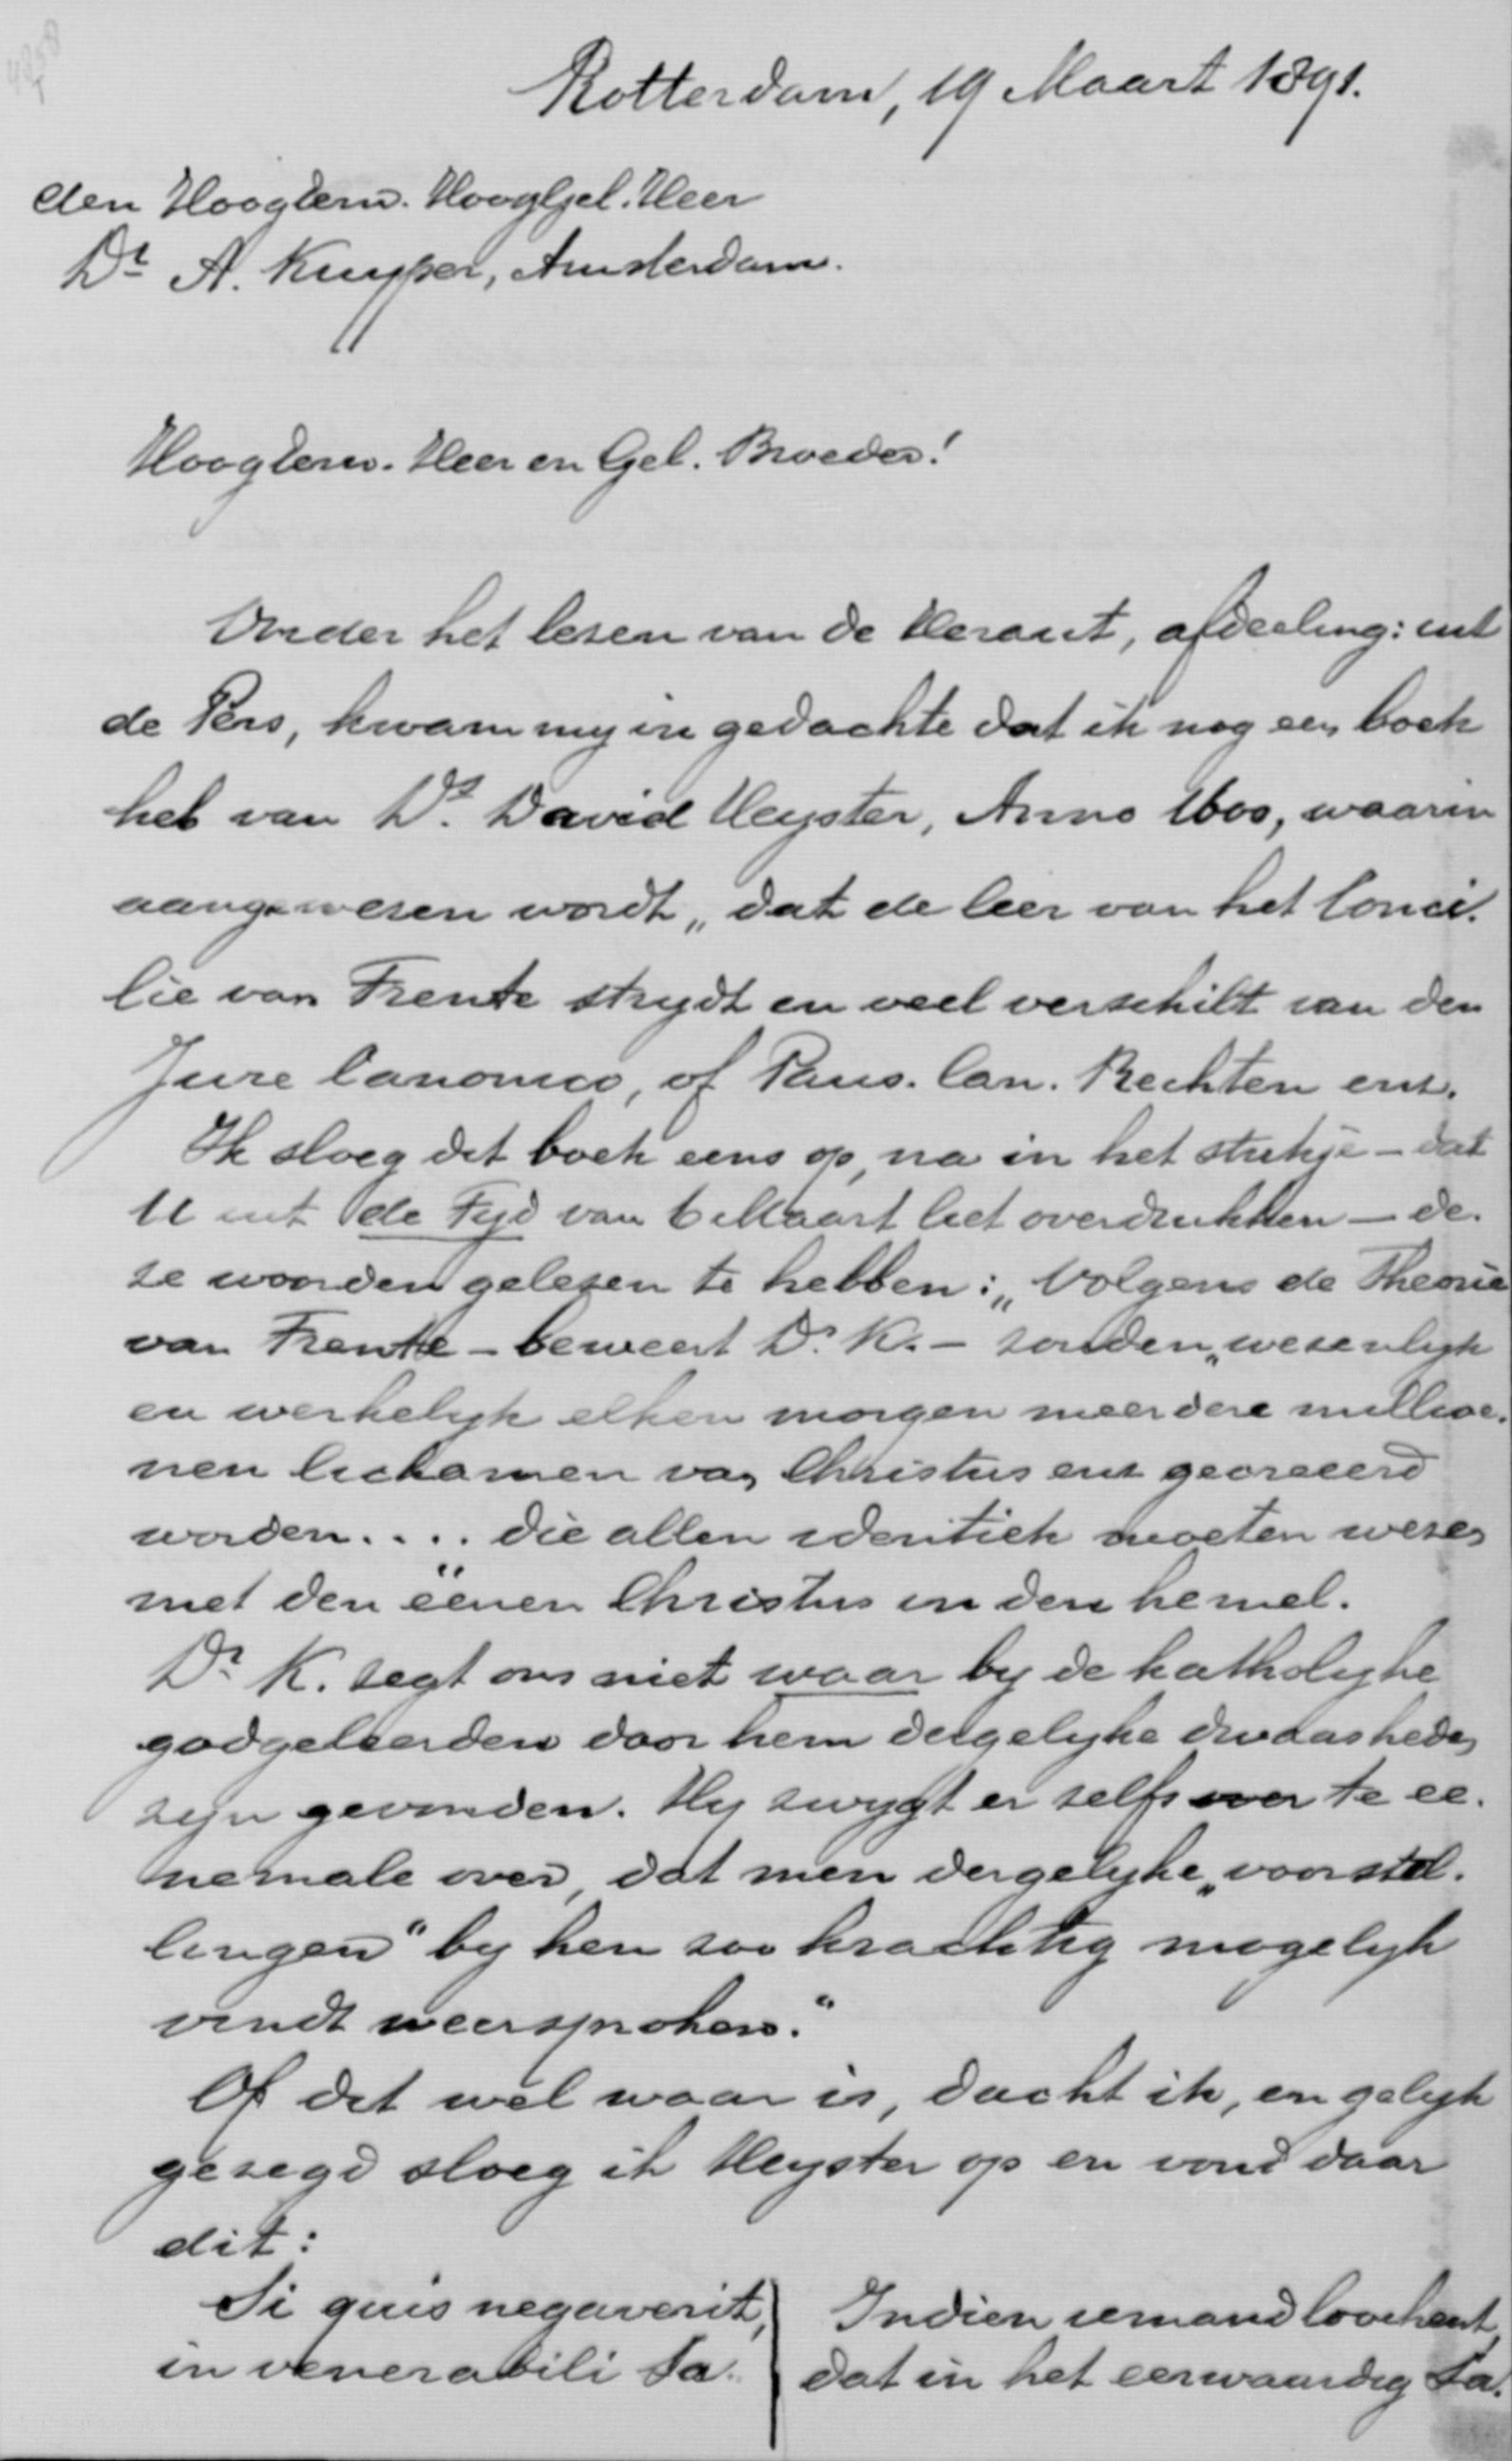 4858
Rotterdam, 19 Maart 1891.
den Hoogeerw. HoogGel. Heer
Dr A. Kuyper, Amsterdam.
Hoogeerw. Heer en Gel. Broeder!
Onder het lezen van de Heraut, afdeeling: uit
de Pers, kwam my in gedachte dat ik nog een boek
heb van Ds. David Heyster, Anno 1600, waarin
aangewezen wordt „dat de leer van het Conci-
lie van Trente strydt en veel verschilt van den
Jure Canonico, of Paus. Can. Rechten enz.
Ik sloeg dit boek eens op, na in het stukje - dat
U uit de Tyd van 6 Maart liet overdrukken - de-
ze woorden gelezen te hebben: „Volgens de Theorie
van Trente - beweert Dr. K. - zouden „wezenlyk
en werkelyk elken morgen meerdere millioe-
nen lichamen van Christus enz gecreeerd
worden.... die allen identiek moeten wezen
met den ëenen Christus in den hemel.
Dr K. zegt ons niet waar by de katholyke
godgeleerden door hem dergelyke dwaasheden
zyn gevonden. Hy zwygt er zelfs over te ee-
nemale over, dat men dergelyke „voorstel-
lingen" by hen zoo krachtig mogelyk
vindt weersproken."
Of dit wel waar is, dacht ik, en gelyk
gezegd sloeg ik Heyster op en vond daar
dit:
Si quis negaverit, | Indien iemand loochent,
in venerabili Sa- | dat in het eerwaardig Sa-